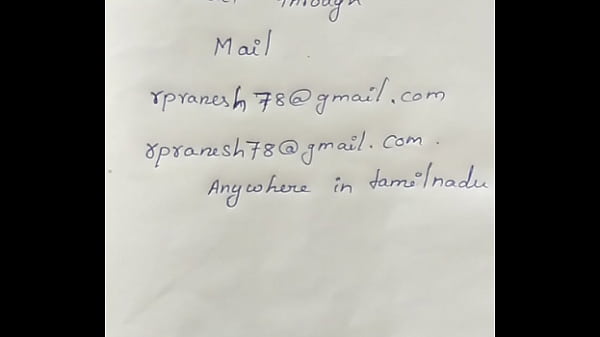 through
Mail
rpranesh78@gmail.com
rpranesh78@gmail.com.
Anywhere in tamilnadu